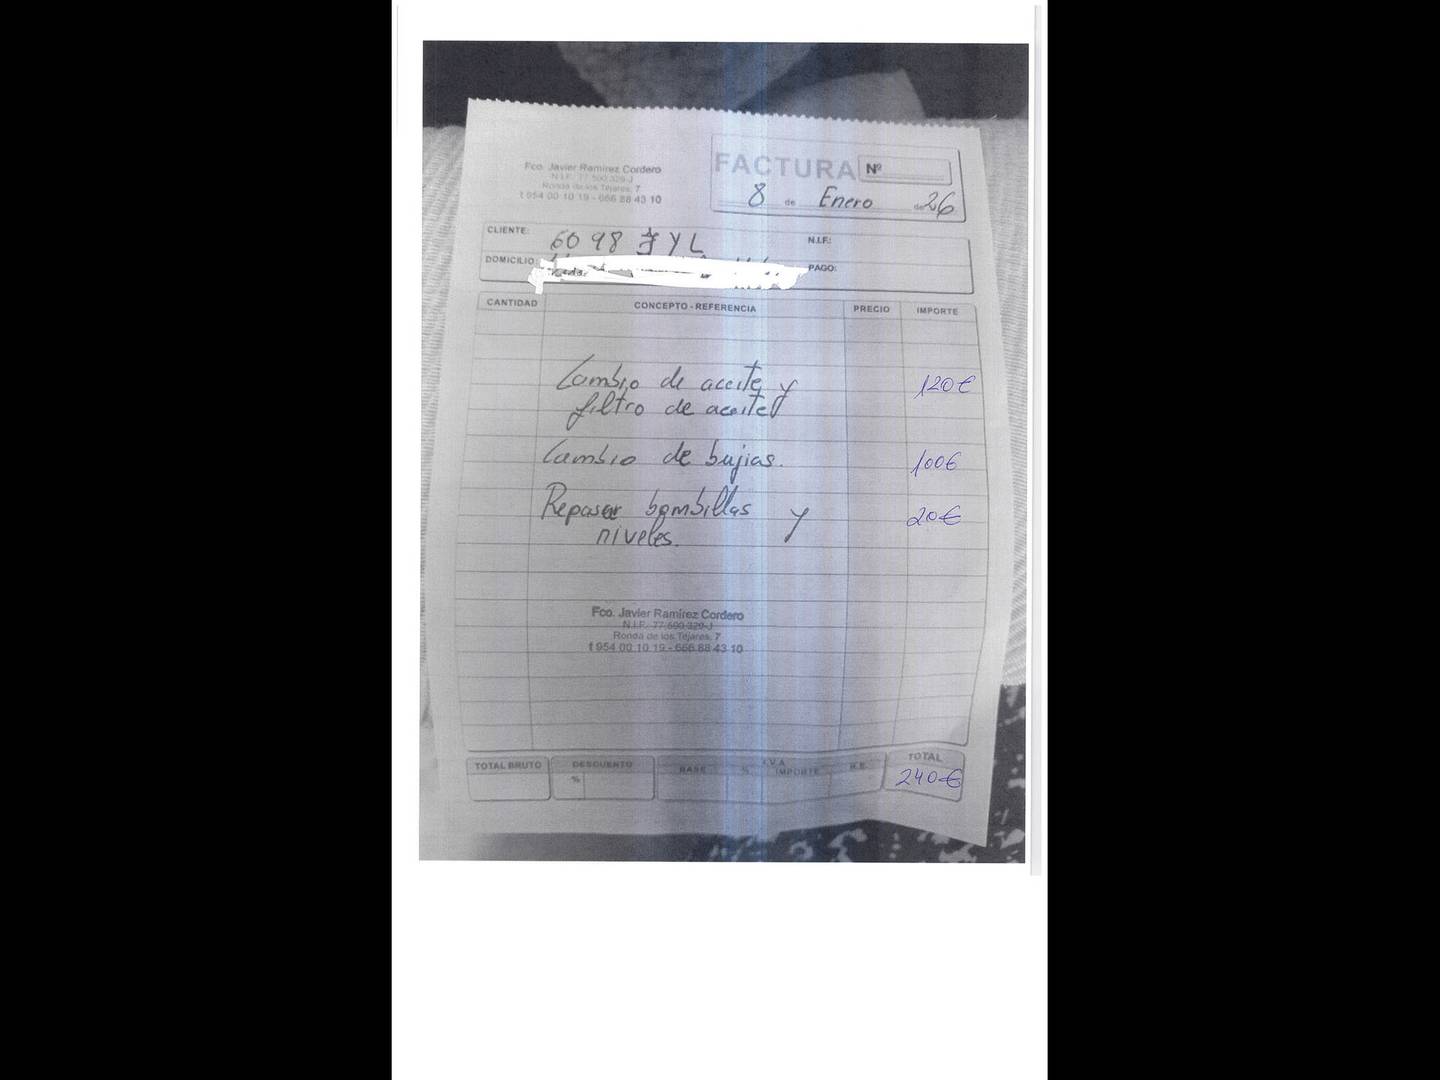 Fco. Javier Ramírez Cordero
N.I.F. 77.590.329-J
Ronda de los Tejares, 7
t 954 00 10 19 - 666 88 43 10
FACTURA Nº
8 de Enero de 26
CLIENTE: 6098 JYL N.I.F.:
DOMICILIO: PAGO:
CANTIDAD CONCEPTO - REFERENCIA PRECIO IMPORTE
Cambio de aceite y 120€
filtro de aceite
Cambio de bujias. 100€
Repasar bombillas y 20€
niveles.
Fco. Javier Ramírez Cordero
N.I.F. 77.590.329-J
Ronda de los Tejares, 7
t 954 00 10 19 - 666 88 43 10
TOTAL BRUTO DESCUENTO I.V.A. TOTAL
% BASE % IMPORTE R.E. 240€